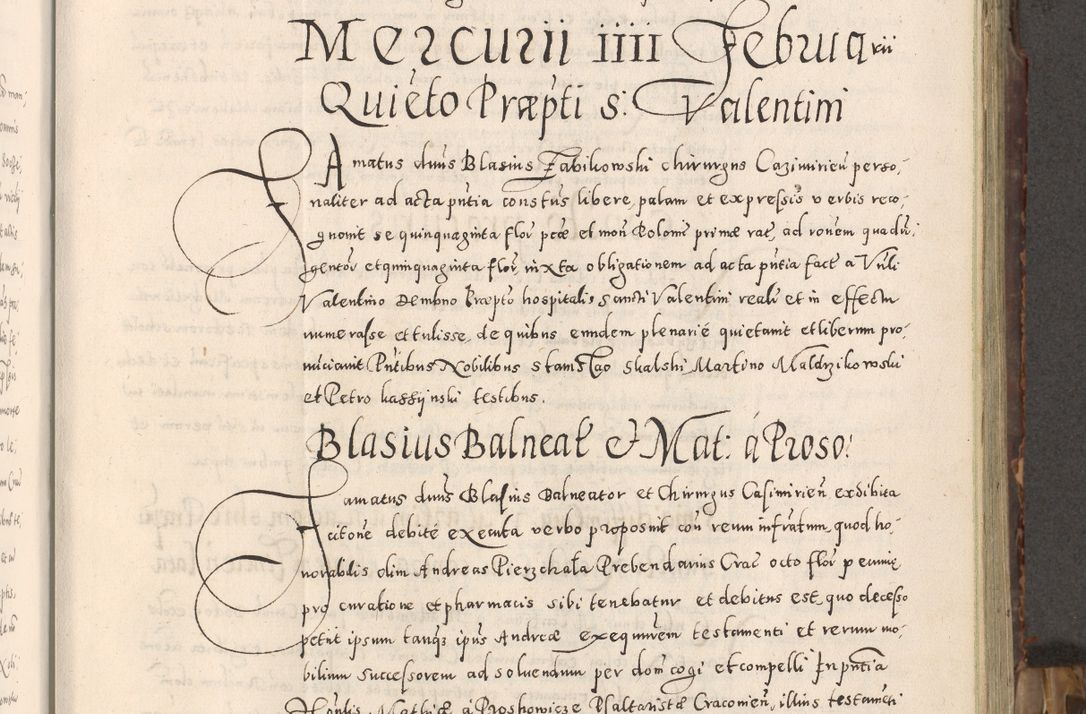 Mercurii IIII Februarii
Quieto Præpti S: Valentini
Famatus dnus Blasius Zabikowski chirurgus Cazimirien perso,
naliter ad acta pntia constus libere, palam et expressis verbis reco,
gnovit se quinquaginta flor pecæ et mon Poloni primæ rat, ad ronem quadri,
gentor et quinquaginta flor, iuxta obligationem ad acta pntia fact a Vnli
Valentino Dembno Præpto hospitalis Sancti Valentini reali et in effectu
numerasse et tulisse, de quibus eundem plenarié quietavit et liberum pro,
nuciavit Pntibus Nobilibus Stanislao Skalski Martino Maldrzikowski
et Petro kassijnski testibus.
Blasius Balneat & Mat: á Proso:
Famatus dnus Blasius Balneator et Chirurgus Casimirien exhibita
citone debité executa verbo proposuit con reum infratum, quod ho,
norabilis olim Andreas Pierzchała Prebendarius Crac octo flor pecuniæ
pro curatione et pharmacis sibi tenebatur et debitus est, quo decesso
petiit ipsum tanq ipus Andreæ exequutrem testamenti et rerum mo,
bilium successorem ad solvendum per dom cogi et compelli In pntia
Honlis Mathiæ á Proshowicze Psaltaristæ Cracovien, illius testamenti